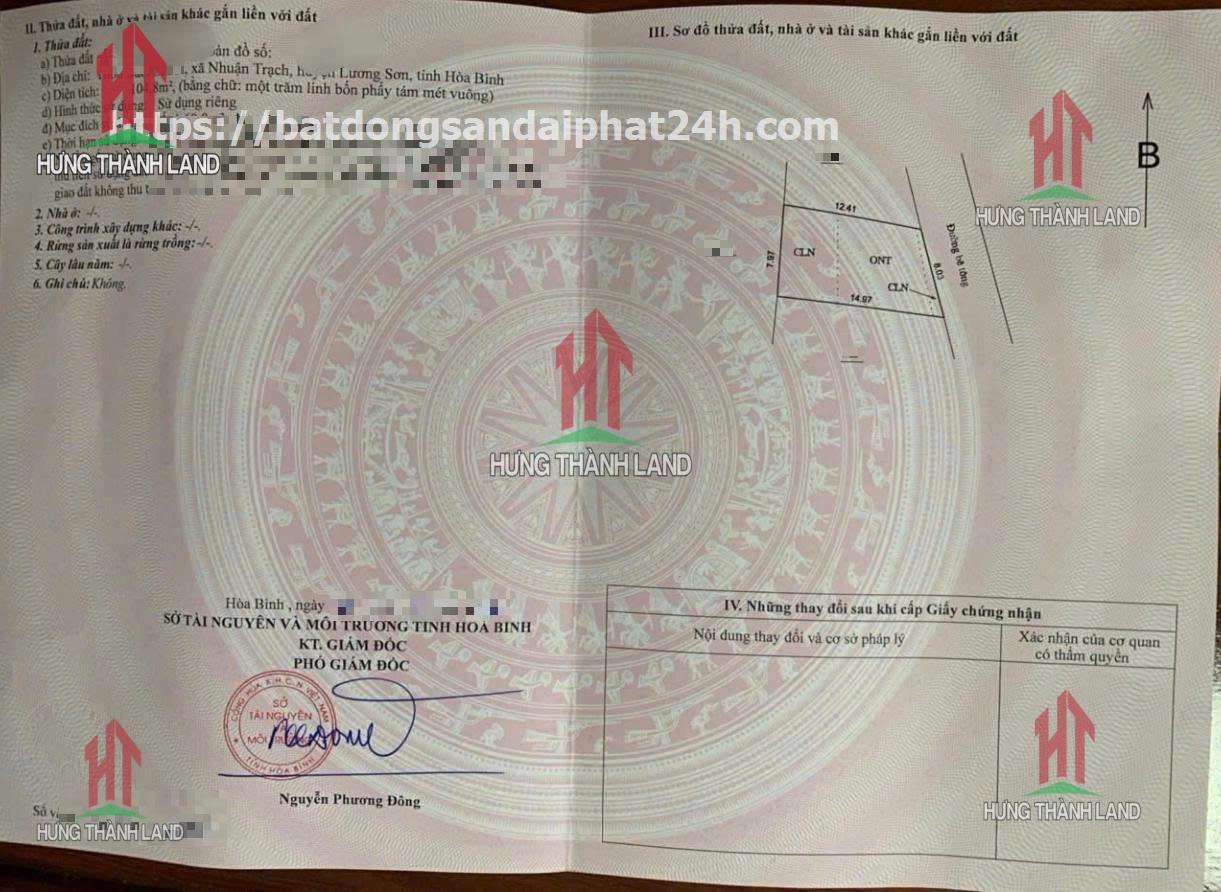 II. Thửa đất, nhà ở và tài sản khác gắn liền với đất
1. Thửa đất:
a) Thửa đất bản đồ số:
b) Địa chỉ: xã Nhuận Trạch, huyện Lương Sơn, tỉnh Hòa Bình
c) Diện tích: 104,8m², (bằng chữ: một trăm linh bốn phẩy tám mét vuông)
d) Hình thức sử dụng: Sử dụng riêng
đ) Mục đích
e) Thời hạn
https://batdongsandaiphat24h.com
HƯNG THÀNH LAND
giao đất không thu
2. Nhà ở: -/-.
3. Công trình xây dựng khác: -/-.
4. Rừng sản xuất là rừng trồng: -/-.
5. Cây lâu năm: -/-.
6. Ghi chú: Không.
III. Sơ đồ thửa đất, nhà ở và tài sản khác gắn liền với đất
B
HƯNG THÀNH LAND
12.41
7.97
CLN
ONT
CLN
8.03
14.97
Đường bê tông
HƯNG THÀNH LAND
Hòa Bình , ngày
SỞ TÀI NGUYÊN VÀ MÔI TRƯỜNG TỈNH HÒA BÌNH
KT. GIÁM ĐỐC
PHÓ GIÁM ĐỐC
CỘNG HÒA X.H.C.N VIỆT NAM
SỞ
TÀI NGUYÊN
MÔI TRƯỜNG
TỈNH HÒA BÌNH
Nguyễn Phương Đông
Số
HƯNG THÀNH LAND
IV. Những thay đổi sau khi cấp Giấy chứng nhận
Nội dung thay đổi và cơ sở pháp lý
Xác nhận của cơ quan
có thẩm quyền
HƯNG THÀNH LAND